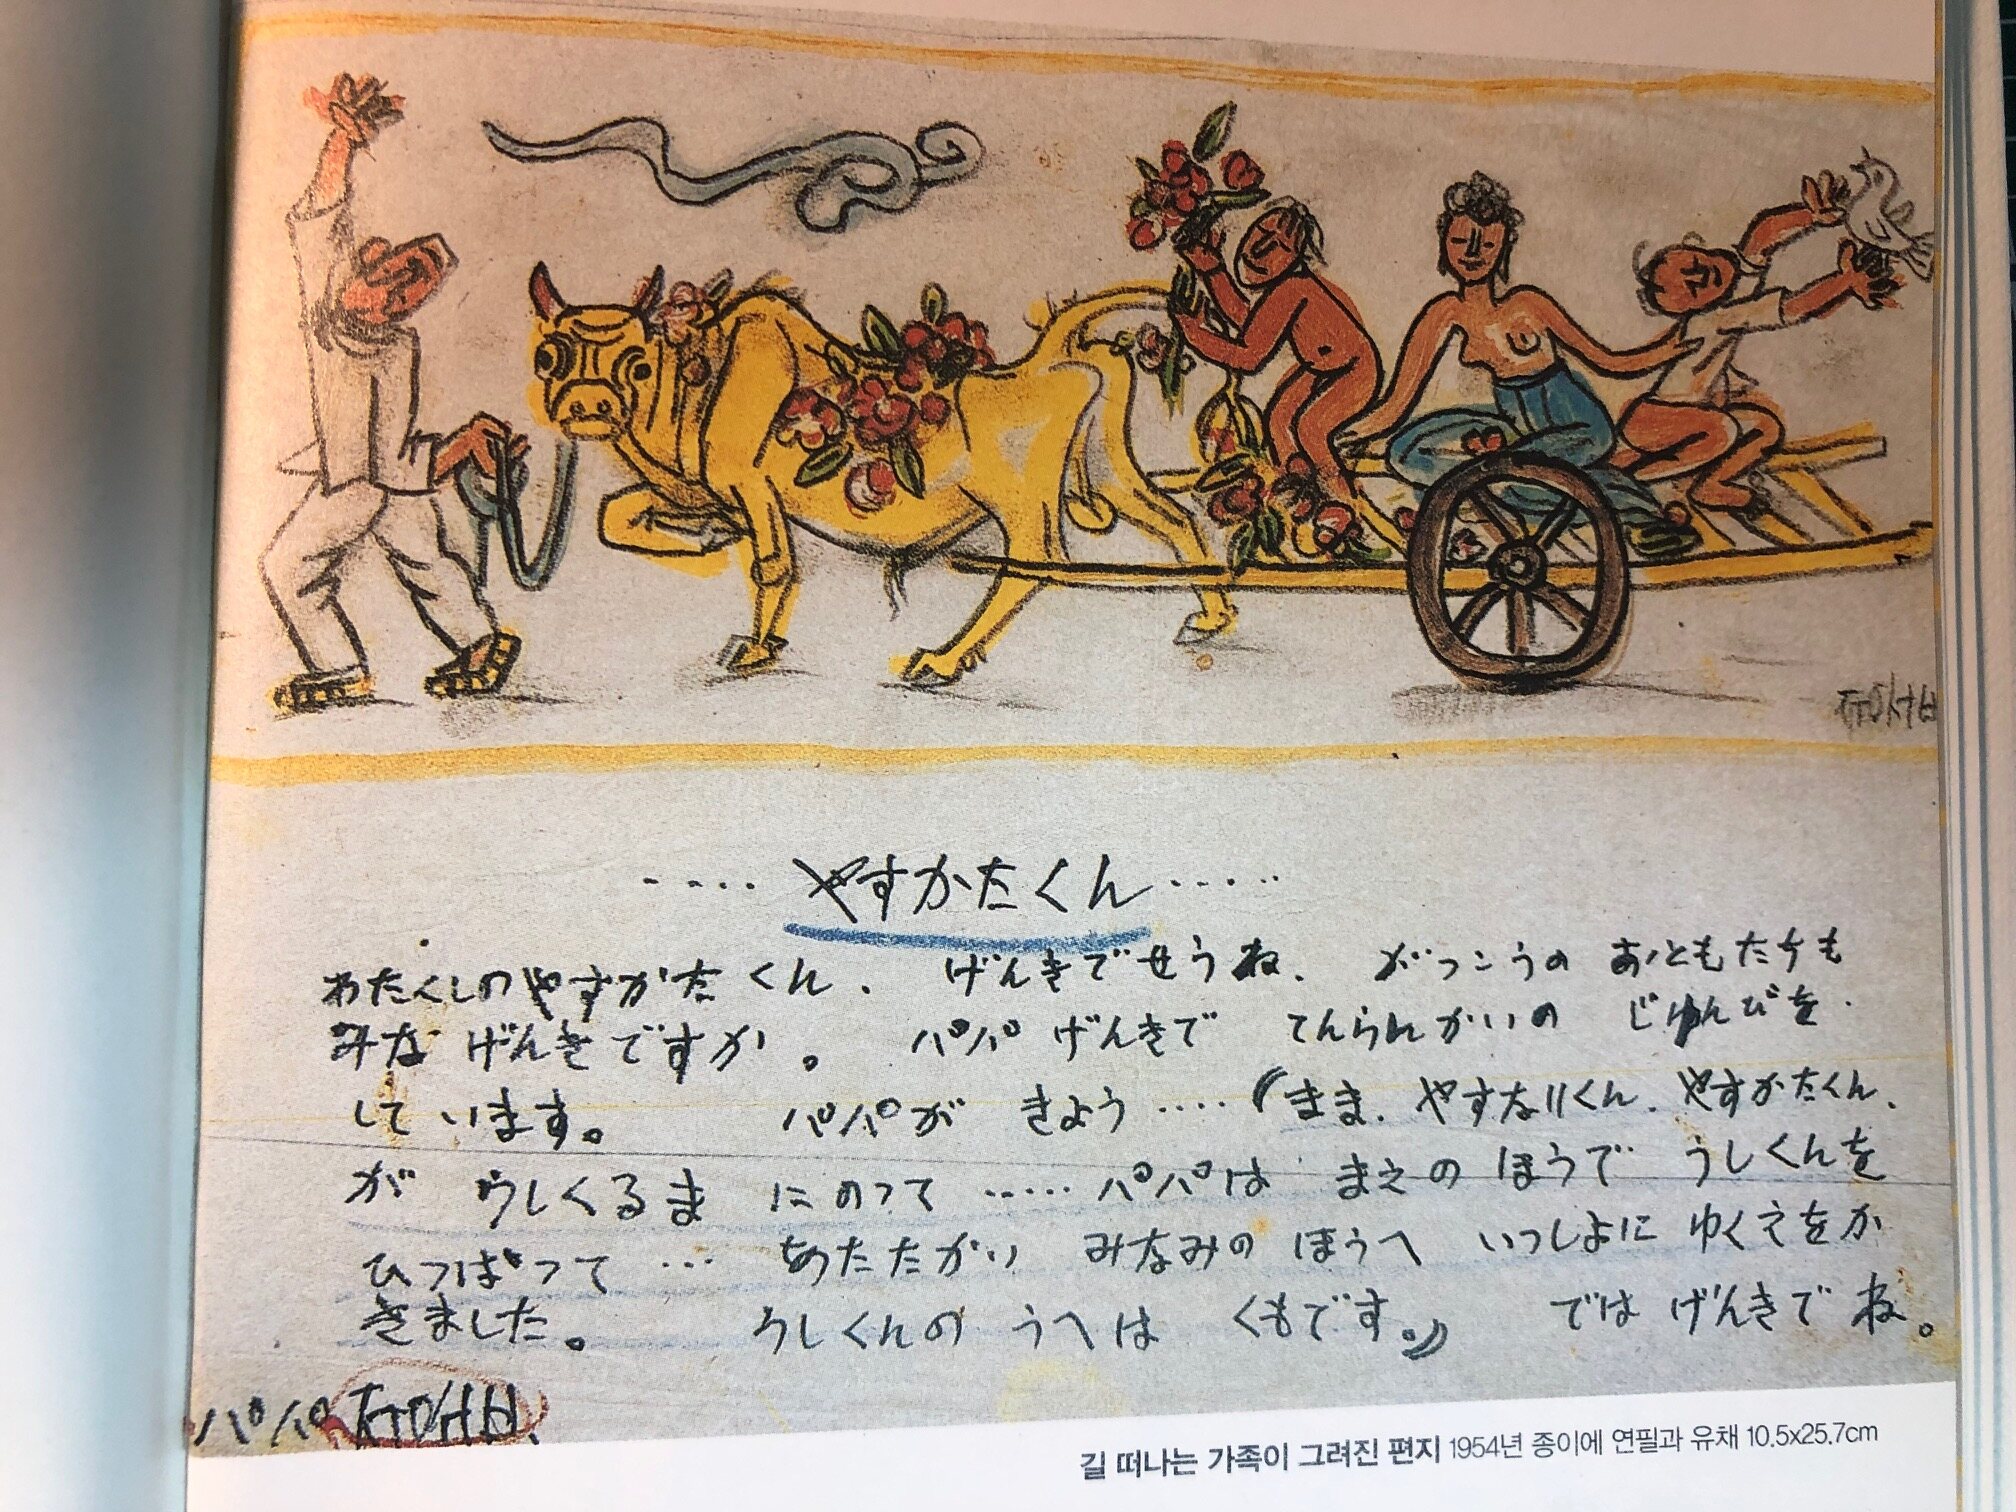 ㅈㅜㅇㅅㅓㅂ
‥‥ やすかたくん ‥‥‥
わたくしの やすかた くん. げんきでせうね. がっこうの おともたちも
みな げんきですか。 パパ げんきで てんらんかいの じゅんびを.
しています。 パパが きよう ‥‥ (まま. やすなりくん. やすかたくん.
が うしくるま にのって ‥‥‥ パパは まえの ほうで うしくんを
ひっぱって … あたたかい みなみの ほうへ いっしよに ゆくえをか
きました。 うしくんの うへは くもです。) では げんきで ね。
パパ.ㅈㅜㅇㅅㅓㅂ.
길 떠나는 가족이 그려진 편지 1954년 종이에 연필과 유채 10.5x25.7cm